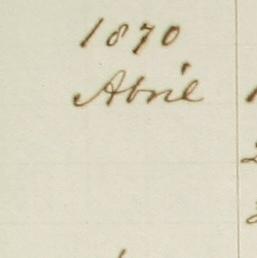 1870
Abril